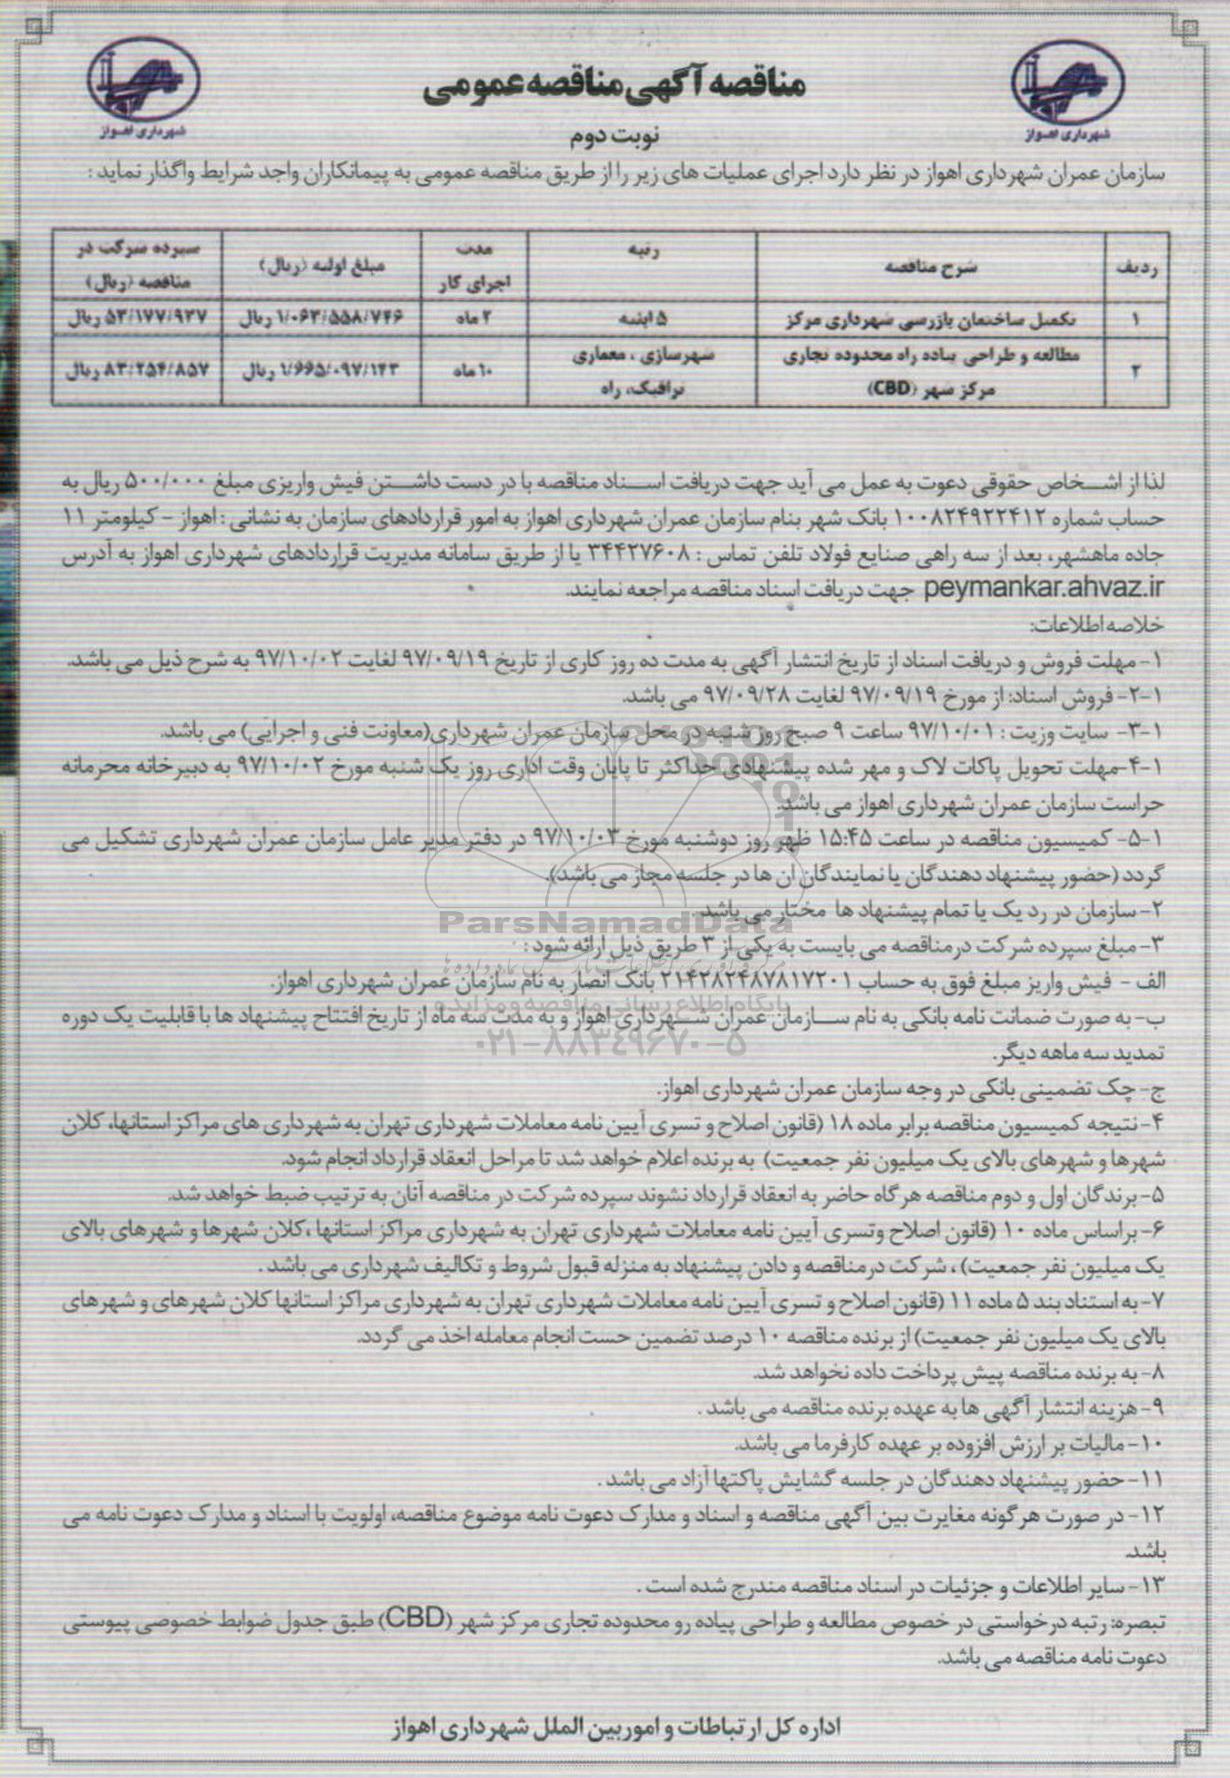 شهرداری اهواز
شهرداری اهواز
مناقصه آگهی مناقصه عمومی
نوبت دوم
سازمان عمران شهرداری اهواز در نظر دارد اجرای عملیات های زیر را از طریق مناقصه عمومی به پیمانکاران واجد شرایط واگذار نماید :
ردیف شرح مناقصه رتبه مدت اجرای کار مبلغ اولیه (ریال) سپرده شرکت در مناقصه (ریال)
۱ تکمیل ساختمان بازرسی شهرداری مرکز ۵ ابنیه ۲ ماه ۱/۰۶۳/۵۵۸/۷۴۶ ریال ۵۳/۱۷۷/۹۳۷ ریال
۲ مطالعه و طراحی پیاده راه محدوده تجاری مرکز شهر (CBD) شهرسازی ، معماری ترافیک، راه ۱۰ ماه ۱/۶۶۵/۰۹۷/۱۴۳ ریال ۸۳/۲۵۴/۸۵۷ ریال
لذا از اشخاص حقوقی دعوت به عمل می آید جهت دریافت اسناد مناقصه با در دست داشتن فیش واریزی مبلغ ۵۰۰/۰۰۰ ریال به
حساب شماره ۱۰۰۸۲۴۹۲۲۴۱۲ بانک شهر بنام سازمان عمران شهرداری اهواز به امور قراردادهای سازمان به نشانی : اهواز - کیلومتر ۱۱
جاده ماهشهر، بعد از سه راهی صنایع فولاد تلفن تماس : ۳۴۴۲۷۶۰۸ یا از طریق سامانه مدیریت قراردادهای شهرداری اهواز به آدرس
peymankar.ahvaz.ir جهت دریافت اسناد مناقصه مراجعه نمایند.
خلاصه اطلاعات:
۱- مهلت فروش و دریافت اسناد از تاریخ انتشار آگهی به مدت ده روز کاری از تاریخ ۹۷/۰۹/۱۹ لغایت ۹۷/۱۰/۰۲ به شرح ذیل می باشد.
۱-۲- فروش اسناد: از مورخ ۹۷/۰۹/۱۹ لغایت ۹۷/۰۹/۲۸ می باشد.
۱-۳- سایت وزیت : ۹۷/۱۰/۰۱ ساعت ۹ صبح روز شنبه در محل سازمان عمران شهرداری(معاونت فنی و اجرایی) می باشد.
۱-۴-مهلت تحویل پاکات لاک و مهر شده پیشنهادی حداکثر تا پایان وقت اداری روز یک شنبه مورخ ۹۷/۱۰/۰۲ به دبیرخانه محرمانه
حراست سازمان عمران شهرداری اهواز می باشد.
۱-۵- کمیسیون مناقصه در ساعت ۱۵:۴۵ ظهر روز دوشنبه مورخ ۹۷/۱۰/۰۳ در دفتر مدیر عامل سازمان عمران شهرداری تشکیل می
گردد (حضور پیشنهاد دهندگان یا نمایندگان ان ها در جلسه مجاز می باشد).
۲- سازمان در رد یک یا تمام پیشنهاد ها مختار می باشد.
ParsNamadData
۳- مبلغ سپرده شرکت درمناقصه می بایست به یکی از ۳ طریق ذیل ارائه شود :
الف - فیش واریز مبلغ فوق به حساب ۲۱۴۲۸۲۴۸۷۸۱۷۲۰۱ بانک انصار به نام سازمان عمران شهرداری اهواز.
پایگاه اطلاع رسانی مناقصه و مزایده
ب- به صورت ضمانت نامه بانکی به نام سازمان عمران شهرداری اهواز و به مدت سه ماه از تاریخ افتتاح پیشنهاد ها با قابلیت یک دوره
۰۲۱-۸۸۳۴۹۶۷۰-۵
تمدید سه ماهه دیگر.
ج- چک تضمینی بانکی در وجه سازمان عمران شهرداری اهواز.
۴- نتیجه کمیسیون مناقصه برابر ماده ۱۸ (قانون اصلاح و تسری آیین نامه معاملات شهرداری تهران به شهرداری های مراکز استانها، کلان
شهرها و شهرهای بالای یک میلیون نفر جمعیت) به برنده اعلام خواهد شد تا مراحل انعقاد قرارداد انجام شود.
۵- برندگان اول و دوم مناقصه هرگاه حاضر به انعقاد قرارداد نشوند سپرده شرکت در مناقصه آنان به ترتیب ضبط خواهد شد.
۶- براساس ماده ۱۰ (قانون اصلاح وتسری آیین نامه معاملات شهرداری تهران به شهرداری مراکز استانها ،کلان شهرها و شهرهای بالای
یک میلیون نفر جمعیت) ، شرکت درمناقصه و دادن پیشنهاد به منزله قبول شروط و تکالیف شهرداری می باشد .
۷- به استناد بند ۵ ماده ۱۱ (قانون اصلاح و تسری آیین نامه معاملات شهرداری تهران به شهرداری مراکز استانها کلان شهرهای و شهرهای
بالای یک میلیون نفر جمعیت) از برنده مناقصه ۱۰ درصد تضمین حست انجام معامله اخذ می گردد.
۸- به برنده مناقصه پیش پرداخت داده نخواهد شد.
۹- هزینه انتشار آگهی ها به عهده برنده مناقصه می باشد .
۱۰- مالیات بر ارزش افزوده بر عهده کارفرما می باشد.
۱۱- حضور پیشنهاد دهندگان در جلسه گشایش پاکتها آزاد می باشد .
۱۲- در صورت هرگونه مغایرت بین آگهی مناقصه و اسناد و مدارک دعوت نامه موضوع مناقصه، اولویت با اسناد و مدارک دعوت نامه می
باشد.
۱۳- سایر اطلاعات و جزئیات در اسناد مناقصه مندرج شده است .
تبصره: رتبه درخواستی در خصوص مطالعه و طراحی پیاده رو محدوده تجاری مرکز شهر (CBD) طبق جدول ضوابط خصوصی پیوستی
دعوت نامه مناقصه می باشد.
اداره کل ارتباطات و امور بین الملل شهرداری اهواز